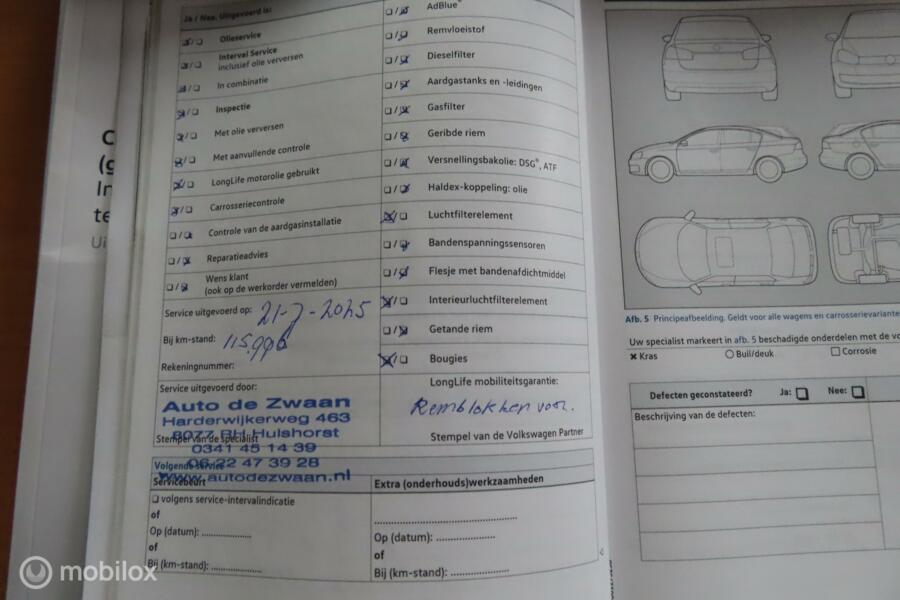 Ja / Nee. Uitgevoerd is:
Olieservice
Interval Service
inclusief olie verversen
In combinatie
Inspectie
Met olie verversen
Met aanvullende controle
LongLife motorolie gebruikt
Carrosseriecontrole
Controle van de aardgasinstallatie
Reparatieadvies
Wens klant
(ook op de werkorder vermelden)
Service uitgevoerd op: 21-7-2025
Bij km-stand: 115.996
Rekeningnummer:
Service uitgevoerd door:
Auto de Zwaan
Harderwijkerweg 463
8077 RH Hulshorst
Stempel van de specialist
0341 45 14 39
06 22 47 39 28
www.autodezwaan.nl
AdBlue®
Remvloeistof
Dieselfilter
Aardgastanks en -leidingen
Gasfilter
Geribde riem
Versnellingsbakolie: DSG®, ATF
Haldex-koppeling: olie
Luchtfilterelement
Bandenspanningssensoren
Flesje met bandenafdichtmiddel
Interieurluchtfilterelement
Getande riem
Bougies
LongLife mobiliteitsgarantie:
Remblokken voor.
Stempel van de Volkswagen Partner
Volgende service
Servicebeurt
volgens service-intervalindicatie
of
Op (datum): ....................
of
Bij (km-stand): ....................
Extra (onderhouds)werkzaamheden
Op (datum): ....................
of
Bij (km-stand): ....................
Afb. 5 Principeafbeelding. Geldt voor alle wagens en carrosserievariante
Uw specialist markeert in afb. 5 beschadigde onderdelen met de vo
Kras Buil/deuk Corrosie
Defecten geconstateerd? Ja: Nee:
Beschrijving van de defecten:
mobilox